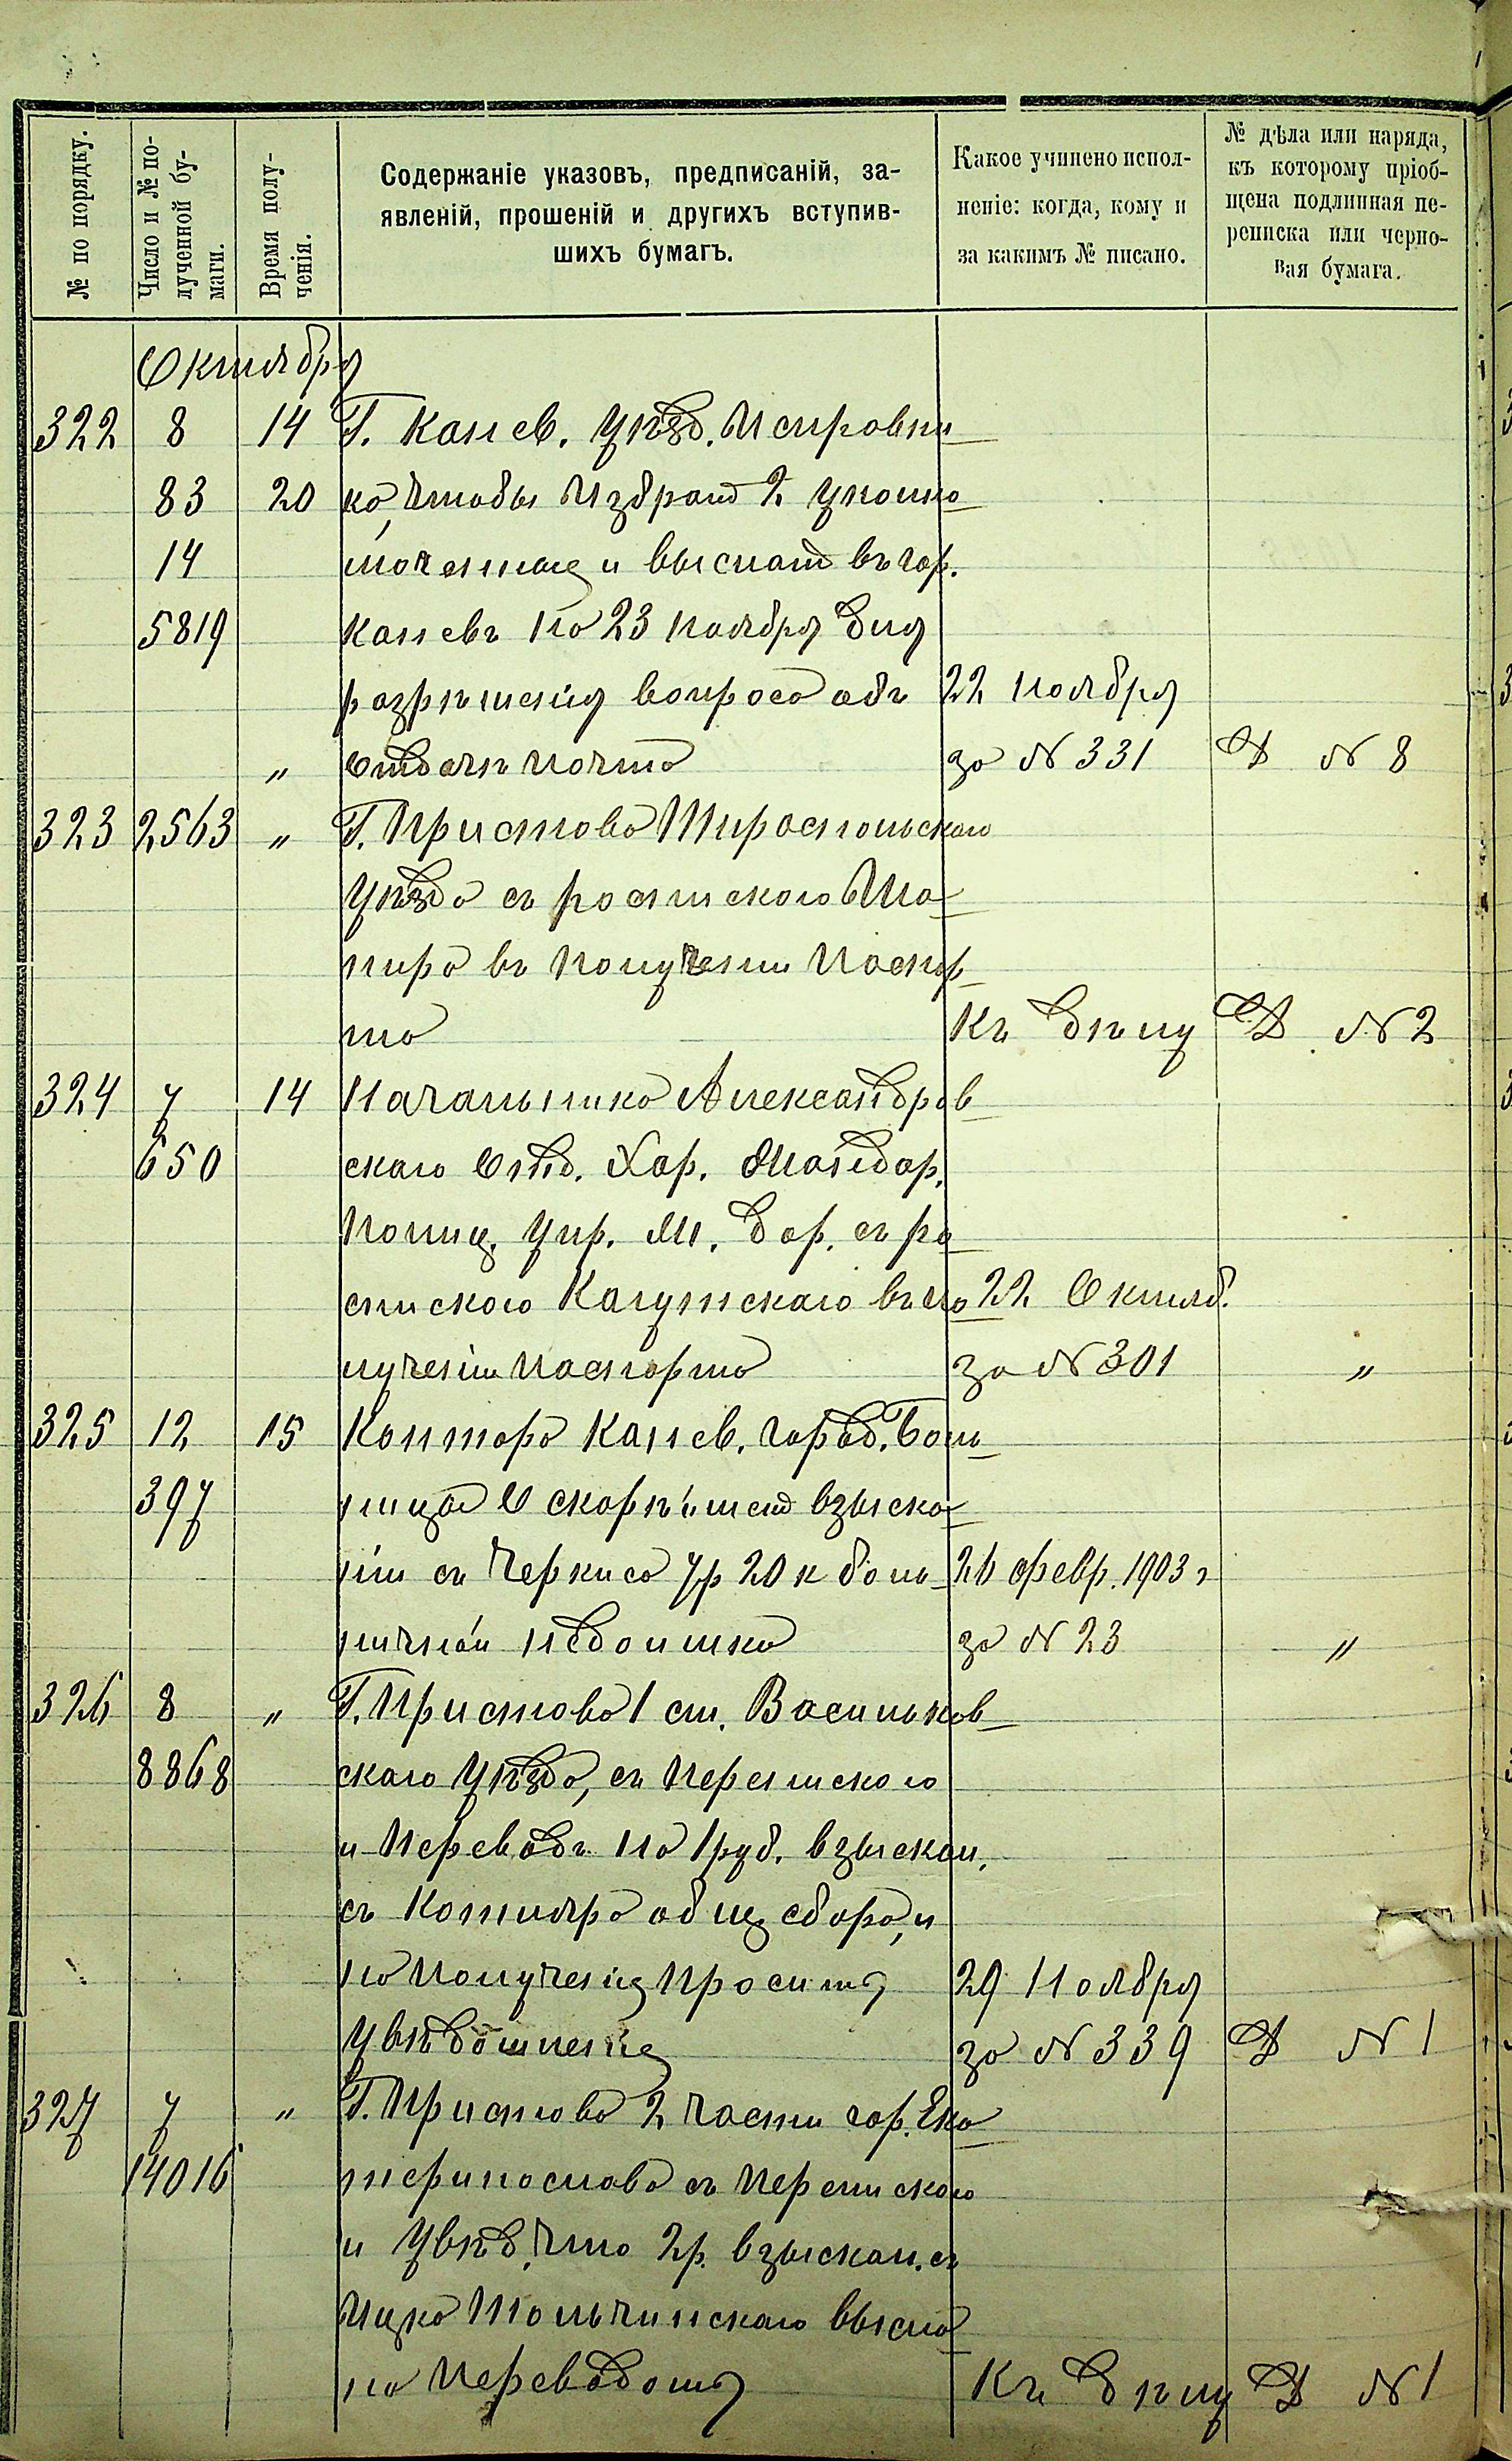 № по порядку.
Число и № по-
лученной бу-
маги.
Время полу-
ченія.
Содержаніе указовъ, предписаній, за-
явленій, прошеній и другихъ вступив-
шихъ бумагъ.
Какое учинено испол-
неніе: когда, кому и
за какимъ № писано.
№ дѣла или наряда,
къ которому пріоб-
щена подлинная пе-
реписка или черно-
вая бумага.
Октября
322 8 14 Г. Канев. Уѣзд. Исправни-
83 20 ка, чтобы избрат 2 уполно-
14 моченных и выслать въ гор.
5819 Каневъ на 23 ноября для
разрѣшенія вопроса объ 22 ноября
" отдачѣ почта за № 331 Д № 8
323 2563 " Г. Пристава Тираспольскаго
Уѣзда съ роспискою Ша-
пира въ получении паспор-
та Къ дѣлу Д № 2
324 7 14 Начальника Александров-
650 скаго Отд. Хар. Жандар.
Полиц. Упр. ж. дор. съ ро-
спискою Кагутскаго въ по- 22 Октяб.
лученіи паспорта за № 301 "
325 12 15 Контора Канев. город. Боль-
397 ница О скорѣйшем взыска-
ніи съ Черкиса 7р 20 к боль- 26 февр. 1903 г
ничной недоимки за № 23 "
326 8 " Г. Пристава 1 ст. Васильков-
8868 скаго Уѣзда, съ перепискою
и Переводъ на 1 руб. взыскан.
съ Котляра общ сбора, и
по полученіи проситъ 29 Ноября
увѣдомленіе за № 339 Д № 1
327 7 " Г. Пристава 2 части гор. Ека-
14016 теринослава съ перепискою
и увѣд. что 2р. взыскан. съ
Ицка Тольчинскаго высла-
на переводомъ Къ дѣлу Д № 1